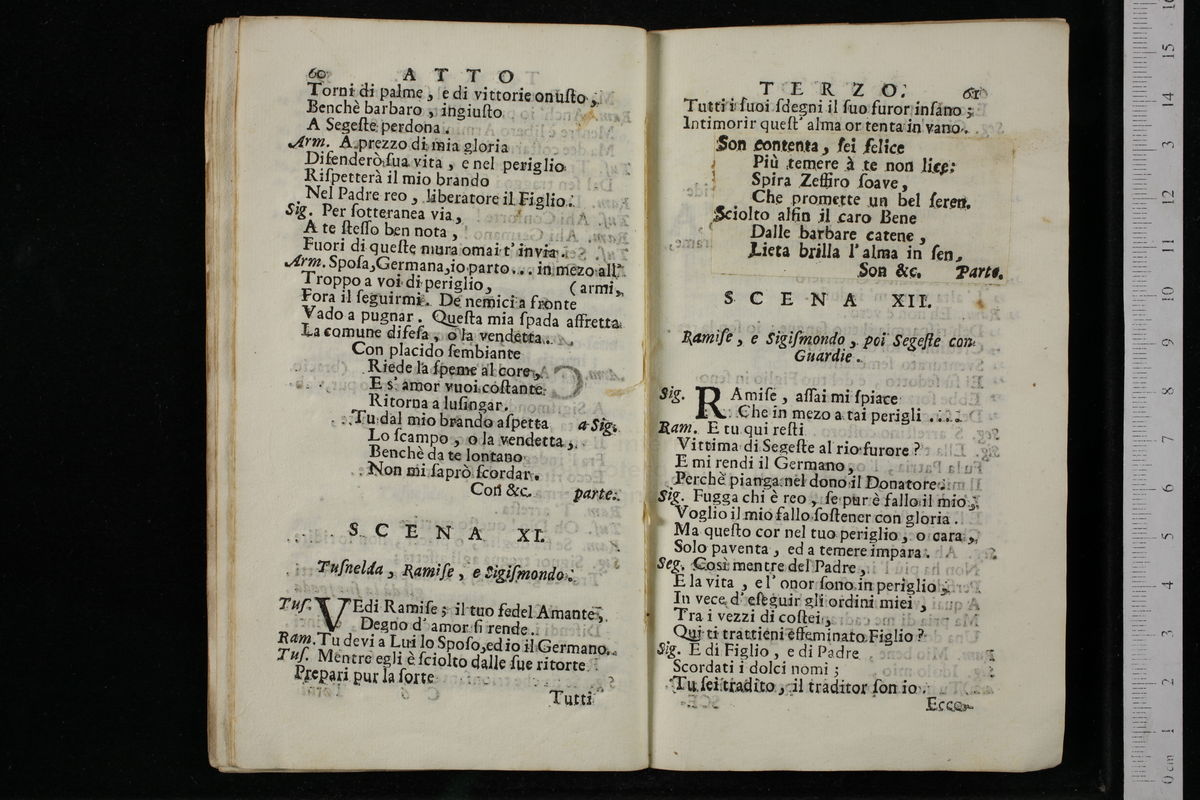 60 ATTO
Torni di palme, e di vittorie onuſto,
Benchè barbaro, ingiuſto
A Segeſte perdona.
Arm. A prezzo di mia gloria
Difenderò ſua vita, e nel periglio
Riſpetterà il mio brando
Nel Padre reo, liberatore il Figlio.
Sig. Per ſotteranea via,
A te ſteſſo ben nota,
Fuori di queſte mura omai t'invia.
Arm. Spoſa, Germana, io parto... in mezo all'
Troppo a voi di periglio, (armi,
Fora il ſeguirmi. De nemici a fronte
Vado a pugnar. Queſta mia ſpada affretta
La comune difeſa, o la vendetta.
Con placido ſembiante
Riede la ſpeme al core,
E s'amor vuoi coſtante
Ritorna a luſingar.
Tu dal mio brando aſpetta a Sig.
Lo ſcampo, o la vendetta,
Benchè da te lontano
Non mi ſaprò ſcordar.
Con &c. parte.
SCENA XI.
Tuſnelda, Ramiſe, e Sigiſmondo.
Tuſ. VEdi Ramiſe; il tuo fedel Amante,
Degno d'amor ſi rende.
Ram. Tu devi a Lui lo Spoſo, ed io il Germano.
Tuſ. Mentre egli è ſciolto dalle ſue ritorte
Prepari pur la ſorte
Tutti
TERZO. 61
Tutti i ſuoi ſdegni il ſuo furor inſano;
Intimorir queſt' alma or tenta in vano.
Son contenta, ſei felice
Più temere à te non lice:
Spira Zeffiro ſoave,
Che promette un bel ſeren.
Sciolto alfin il caro Bene
Dalle barbare catene,
Lieta brilla l'alma in ſen,
Son &c. Parte.
SCENA XII.
Ramiſe, e Sigiſmondo, poi Segeſte con
Guardie.
Sig. RAmiſe, aſſai mi ſpiace
Che in mezo a tai perigli ....
Ram. E tu qui reſti
Vittima di Segeſte al rio furore?
E mi rendi il Germano,
Perchè pianga nel dono il Donatore.
Sig. Fugga chi è reo, ſe pur è fallo il mio,
Voglio il mio fallo ſoſtener con gloria.
Ma queſto cor nel tuo periglio, o cara,
Solo paventa, ed a temere impara.
Seg. Così mentre del Padre,
E la vita, e l'onor ſono in periglio,
In vece d'eſeguir gli ordini miei,
Tra i vezzi di coſtei,
Qui ti trattieni effeminato Figlio?
Sig. E di Figlio, e di Padre
Scordati i dolci nomi;
Tu ſei tradito, il traditor ſon io.
Ecco